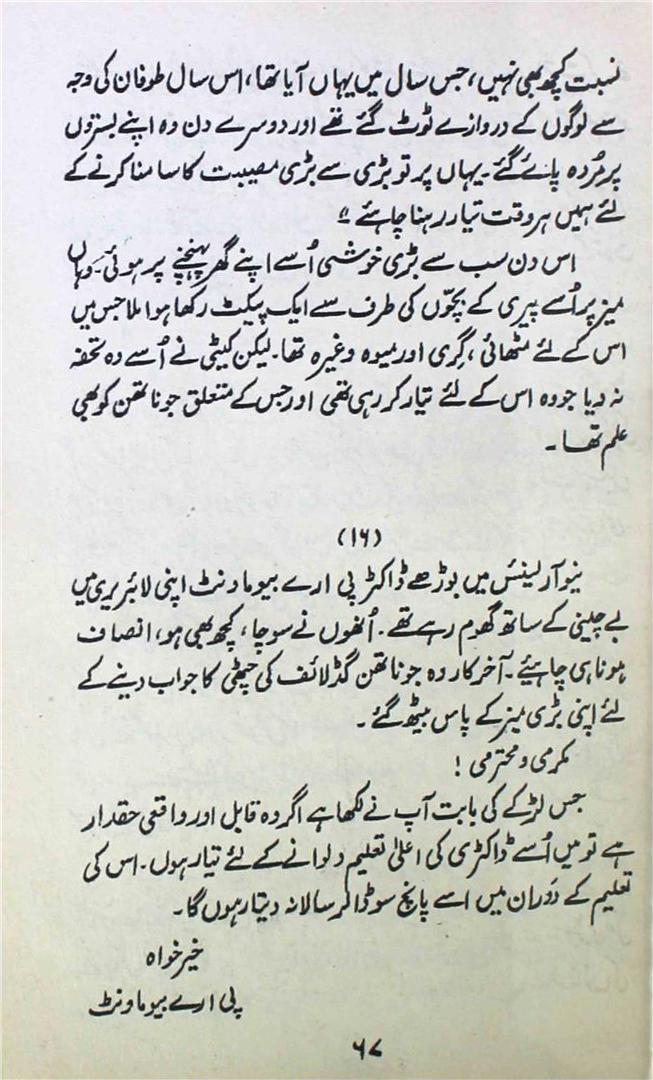 نسبت کچھ بھی نہیں، جس سال میں یہاں آیا تھا، اس سال طوفان کی وجہ
سے لوگوں کے دروازے ٹوٹ گئے تھے اور دوسرے دن وہ اپنے بستروں
پر مُردہ پائے گئے۔ یہاں پر تو بڑی سے بڑی مصیبت کا سامنا کرنے کے
لئے ہمیں ہر وقت تیار رہنا چاہئے"
اس دن سب سے بڑی خوشی اُسے اپنے گھر پہنچنے پر ہوئی۔ وہاں
میز پر اُسے پیری کے بچّوں کی طرف سے ایک پیکٹ رکھا ہوا ملا جس میں
اس کے لئے مٹھائی، گِری اور میوہ وغیرہ تھا۔ لیکن کیٹی نے اُسے وہ تحفہ
نہ دیا جو وہ اس کے لئے تیار کر رہی تھی اور جس کے متعلق جوناتھن کو بھی
علم تھا۔
(۱۶)
نیو آرلینس میں بوڑھے ڈاکٹر پی ارے بیوماونٹ اپنی لائبریری میں
بے چینی کے ساتھ گھوم رہے تھے۔ اُنھوں نے سوچا، کچھ بھی ہو، انصاف
ہونا ہی چاہیئے۔ آخر کار وہ جوناتھن گڈلائف کی چٹھی کا جواب دینے کے
لئے اپنی بڑی میز کے پاس بیٹھ گئے۔
مکرمی و محترمی!
جس لڑکے کی بابت آپ نے لکھا ہے اگر وہ قابل اور واقعی حقدار
ہے تو میں اُسے ڈاکٹری کی اعلیٰ تعلیم دلوانے کے لئے تیار ہوں۔ اس کی
تعلیم کے دَوران میں اسے پانچ سو ڈالر سالانہ دیتا رہوں گا۔
خیر خواہ
پی ارے بیوماونٹ
۶۷